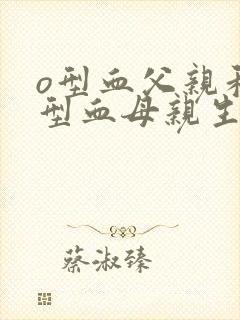 o型血父親和
型血母親生
蔡淑臻